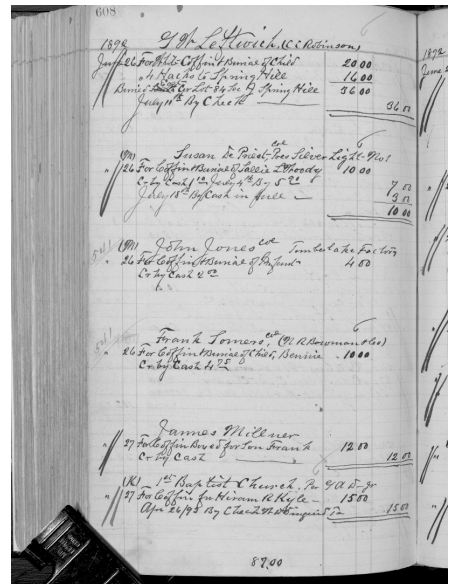 608
1892 G W Leftwich (C C Robinson)
June 26 For White Coffin & Burial of Child 20 00
" 4 Hacks to Spring Hill 16 00
Buried Cor Lot 84 Sec A Spring Hill 36 00
July 11th By Check 36 00
(M) Susan De Priest col Pres Silver Light No 1
" 26 For Coffin & Burial of Sallie L Woody 10 00
Cr by Cash 1 00 July 4th By 5 00 7 00
July 18th By Cash in full 3 00
10 00
541 (M) John Jones col Timberlake Factory
" 26 For Coffin & Burial of Infant 4 00
Cr by Cash 2 00
541 Frank Somers, col (N R Bowman & Co)
" 26 For Coffin & Burial of Child, Bennie 10 00
Cr by Cash 4 75
James Millner
" 27 For Coffin Box for Son Frank 12 00
Cr by Cash 12 00
(K) 1st Baptist Church, Per
" 27 For Coffin for Hiram R Kyle 15 00
Apr 26/98 By Check 15 00
87,00
1892
June